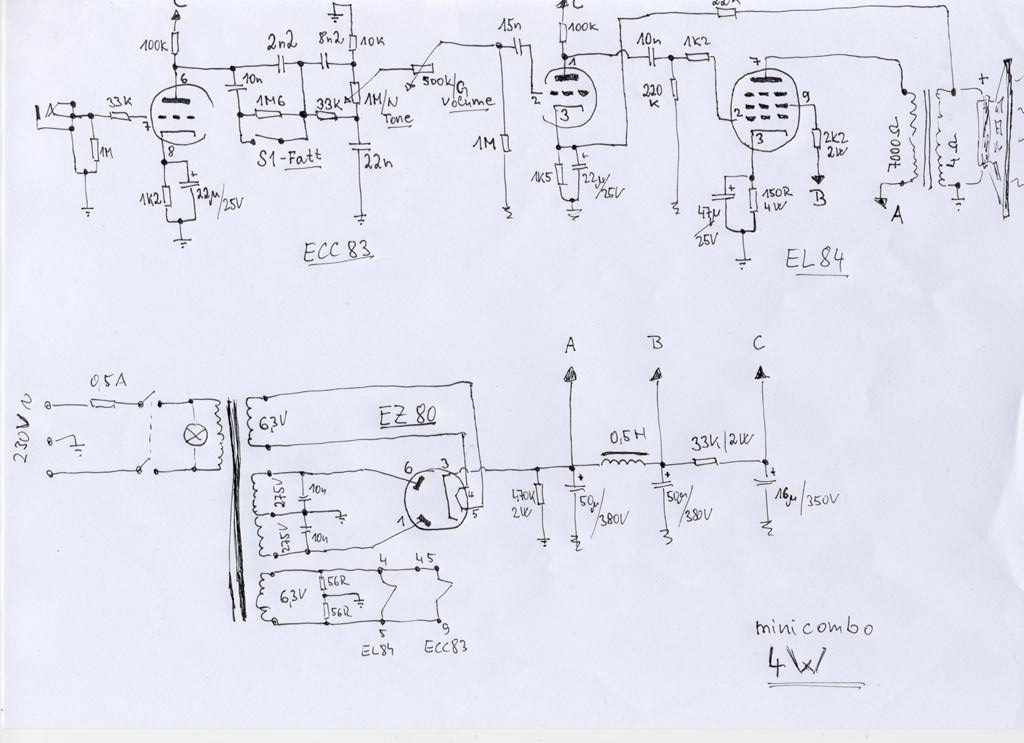 C
C
100K
2n2
8n2
10K
15n
100k
10n
1K2
7
6
10n
33K
7
1M6
33K
1M/N
Tone
500K/G
Volume
2
1
3
220
K
2
9
3
2K2
2W
B
7000Ω
4Ω
A
1M
8
S1-Fatt
22n
1M
1K2
22µ/25V
1K5
22µ/25V
47µ
25V
150R
4W
ECC 83
EL 84
A
B
C
0,5A
230V~
6,3V
EZ 80
0,5H
33K/2W
275V
10n
275V
10n
6
3
1
4
5
470K
2W
50µ/380V
50µ/380V
16µ/350V
6,3V
56R
56R
4
45
5
9
EL84
ECC83
minicombo
4W